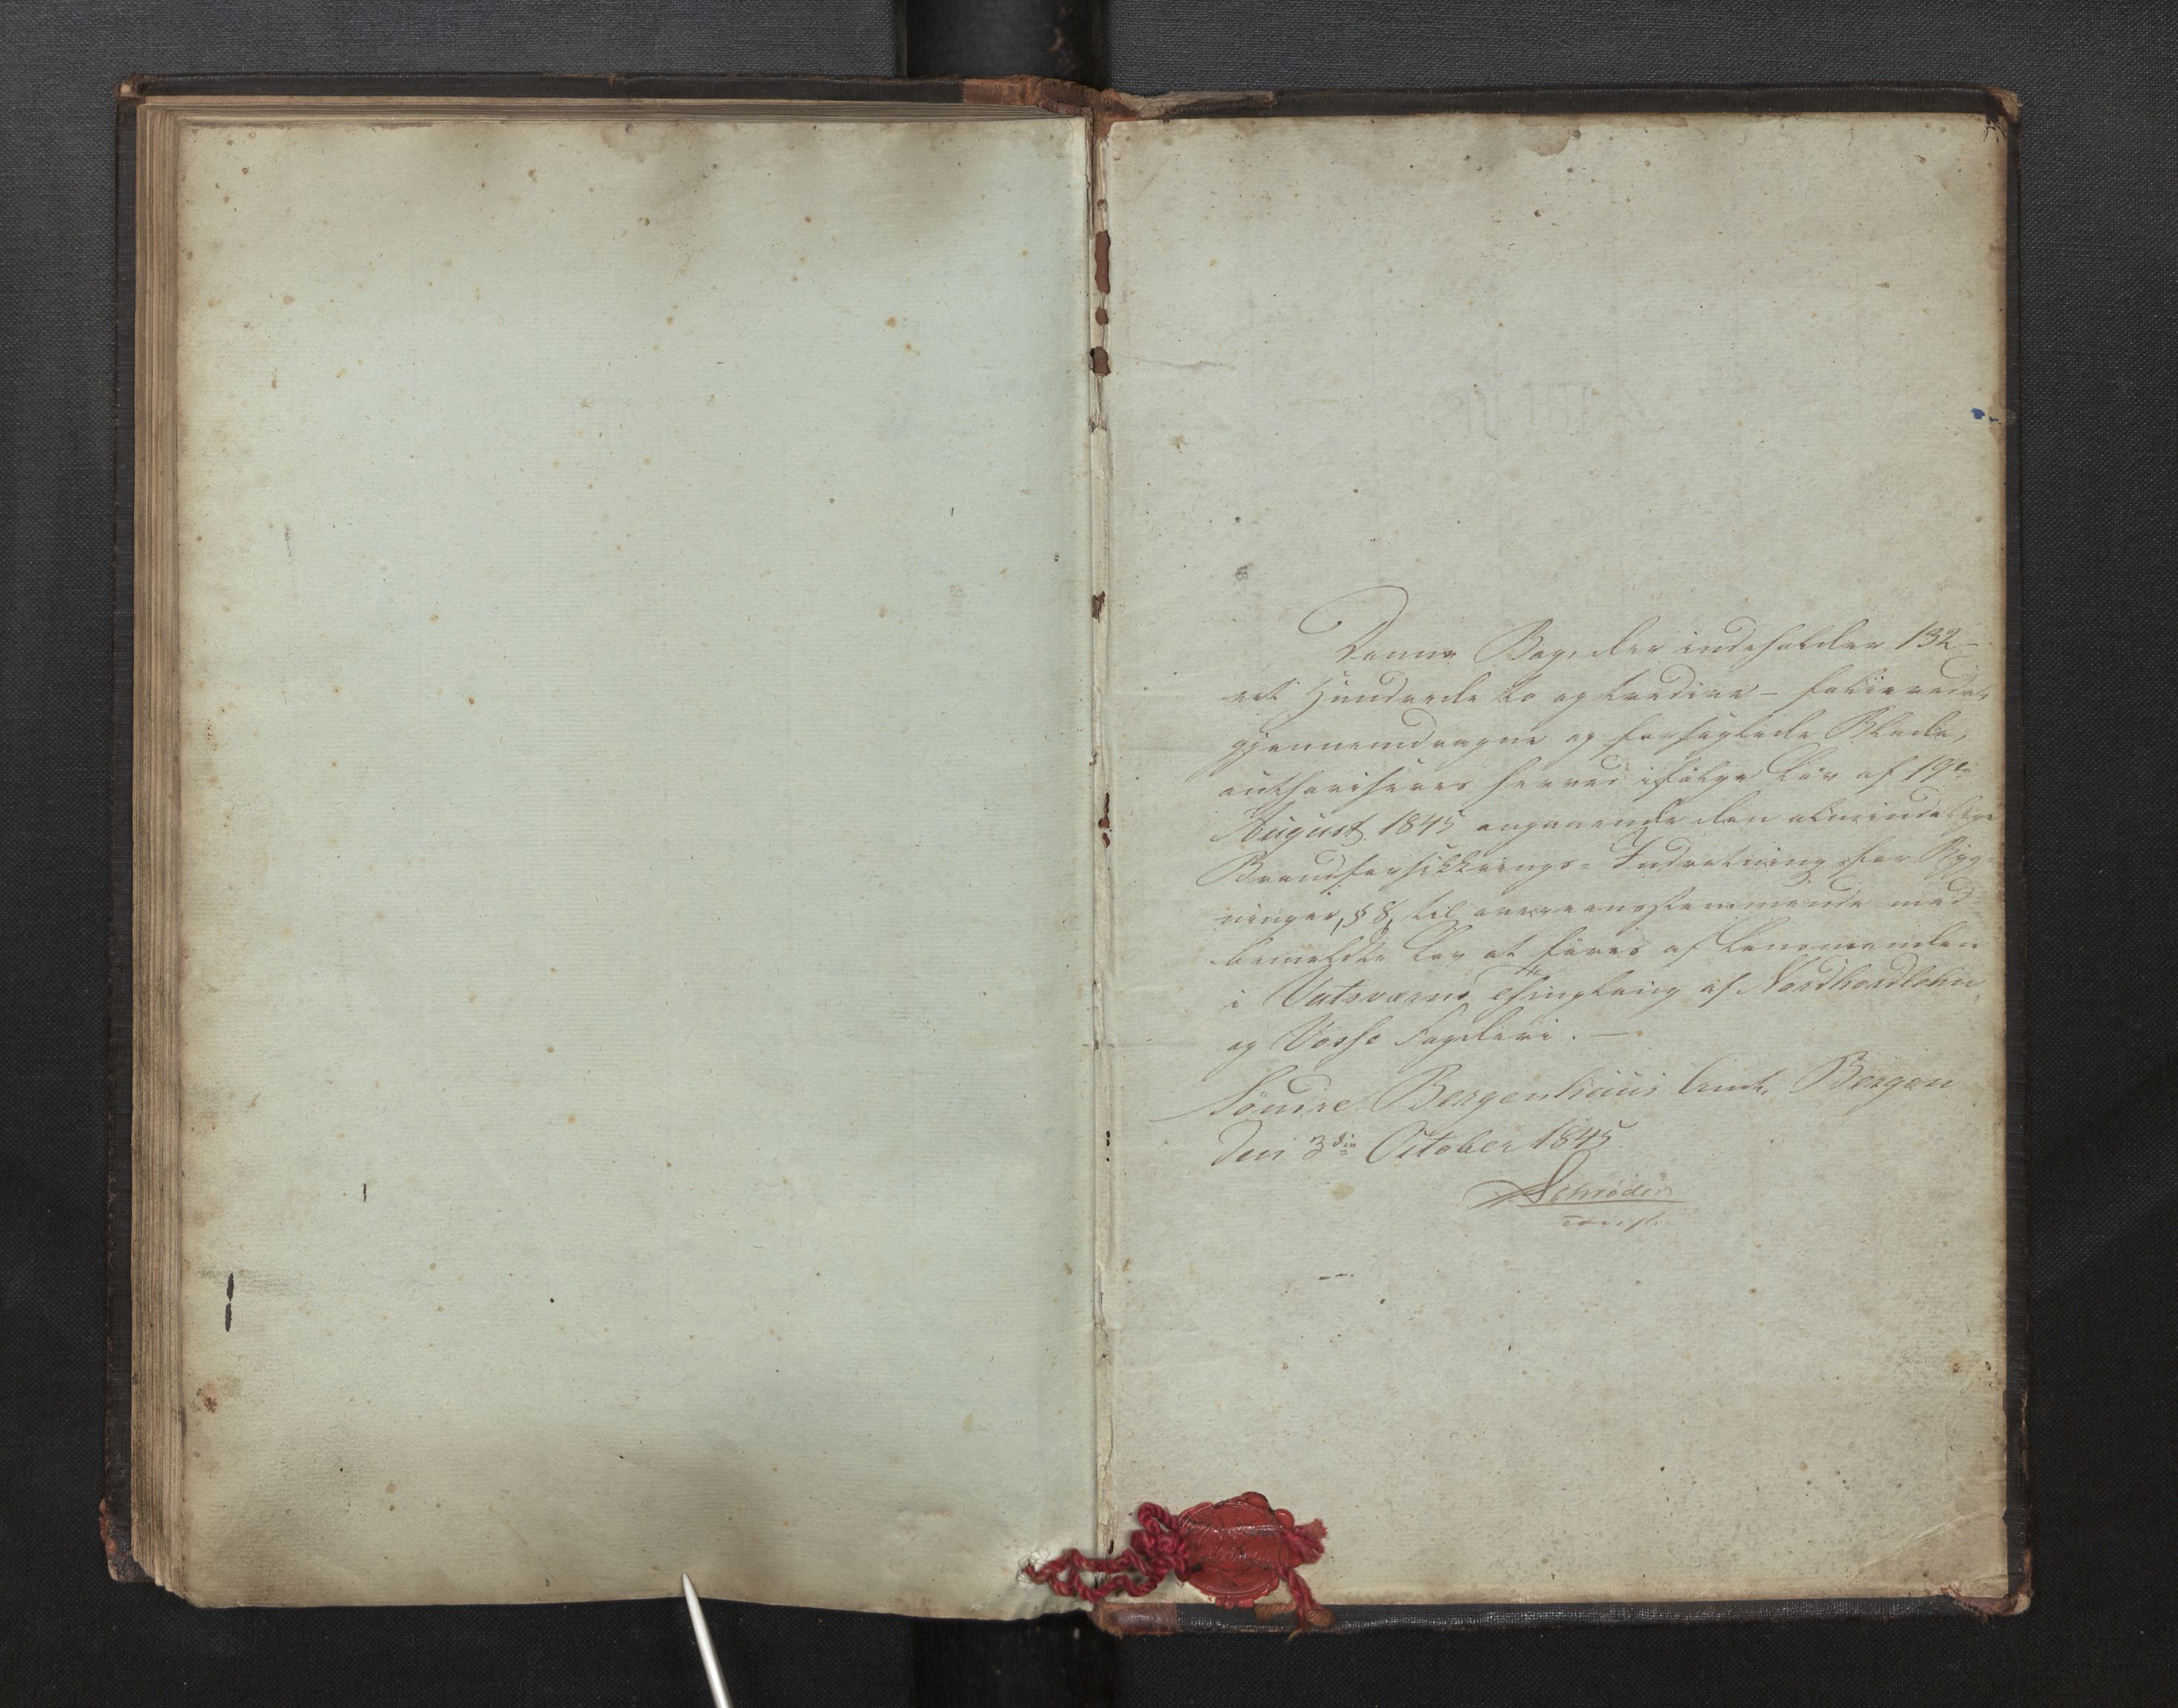 Denne Bog, der indeholder 132 –
eet Hundrede to og tredive – folierede,
gjennemdragne og forseglede Blade,
authoriseres herved ifølge Lov af 19de
August 1845 angaaende den almindelige
Brandforsikkrings-Indretning for Byg-
ninger, § 8, til overeensstemmende med
bemeldte Lov at føres af Lensmanden
i Vatsværns Thinglaug af Nordhordlehn
og Vosse Fogderi. –
Søndre Bergenhuus Amt, Bergen
den 3die October 1845.
Schrøder
const.